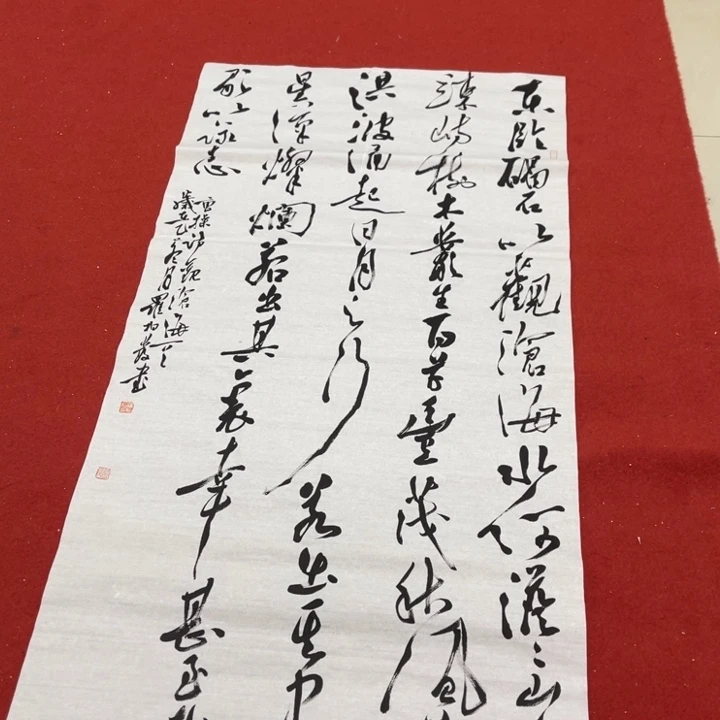 東臨碣石以觀滄海水何澹々山
竦峙樹木叢生百草豐茂秋風
洪波涌起日月之行若出其中
星漢燦爛若出其裏幸甚至
歌以詠志
曹操詩觀滄海
月羅書